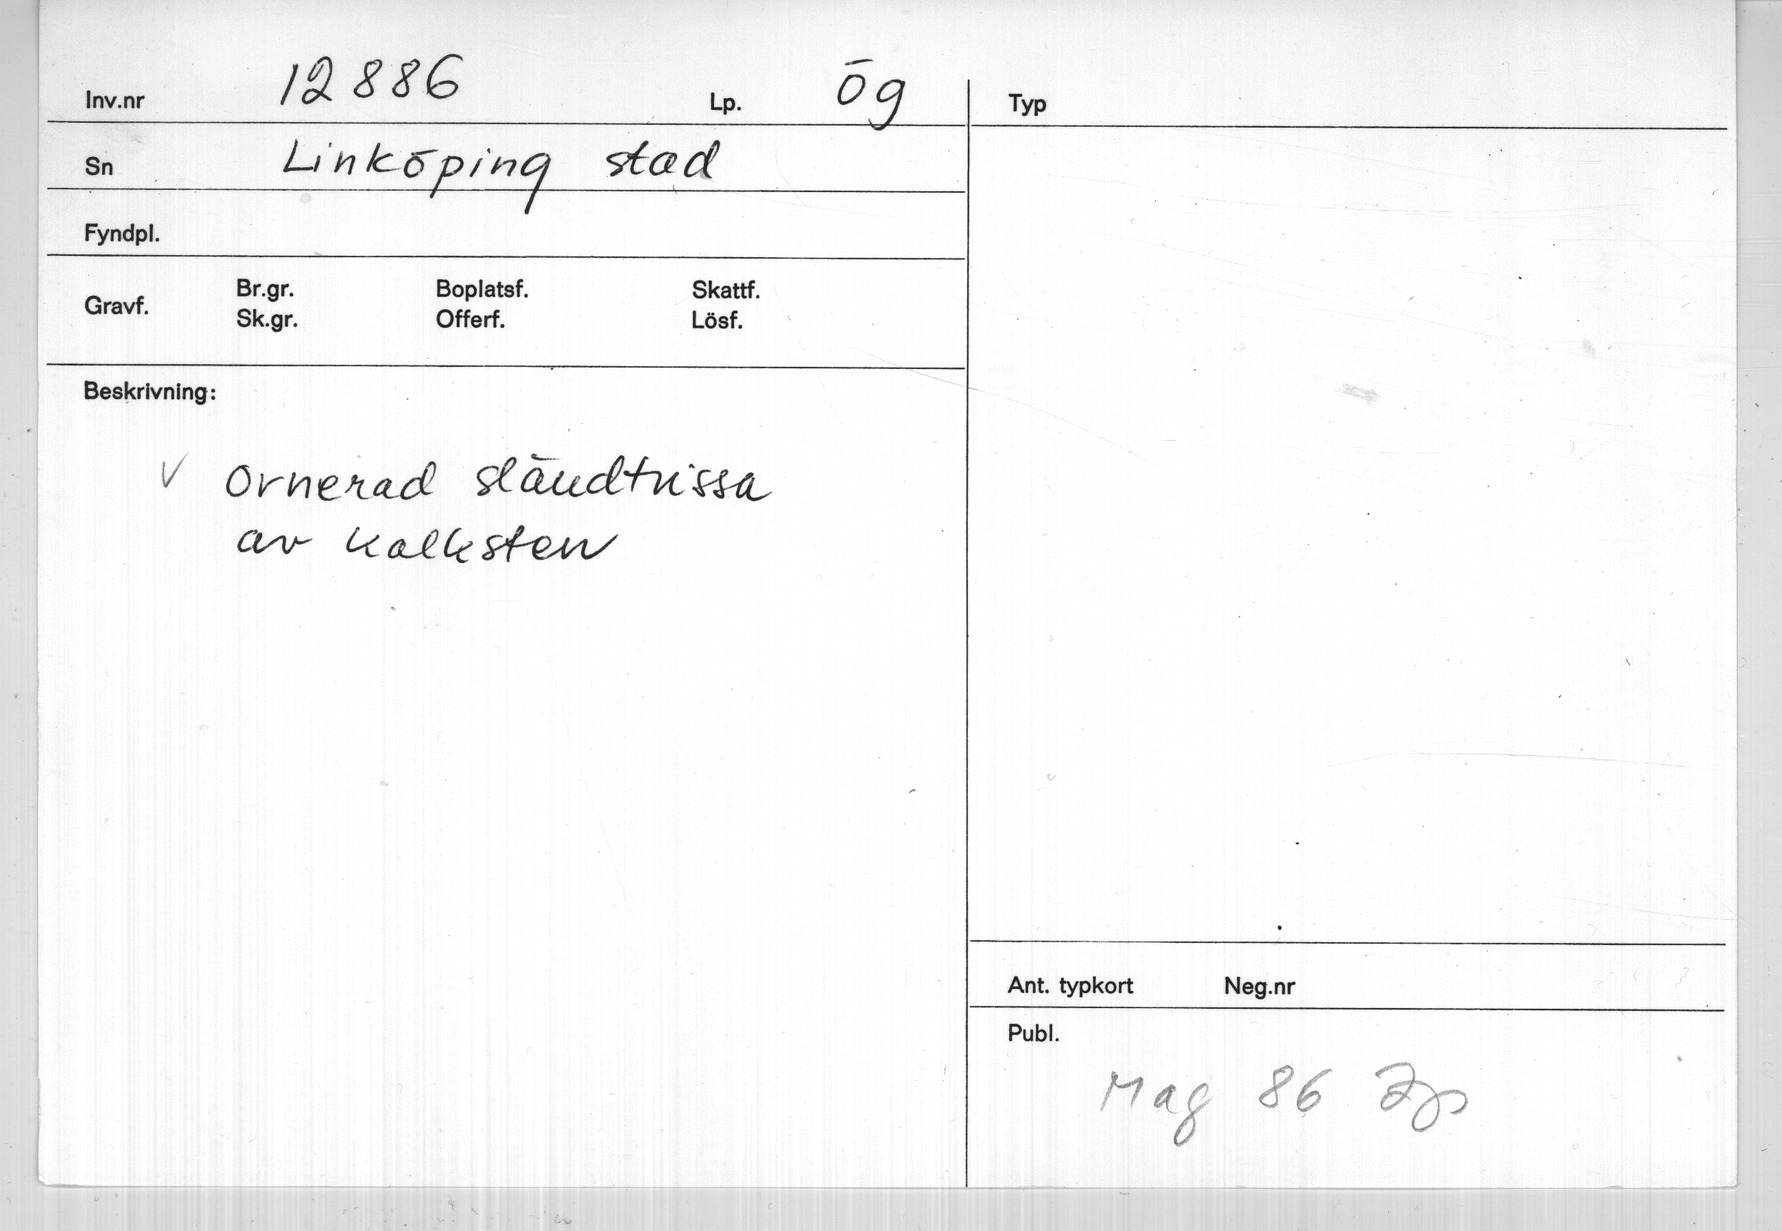 Inv.nr 12886 Lp. Ög
Sn Linköping stad
Fyndpl.
Gravf. Br.gr. Boplatsf. Skattf.
Sk.gr. Offerf. Lösf.
Beskrivning:
✓ Ornerad sländtrissa
av kalksten
Typ
Ant. typkort Neg.nr
Publ.
Mag 86